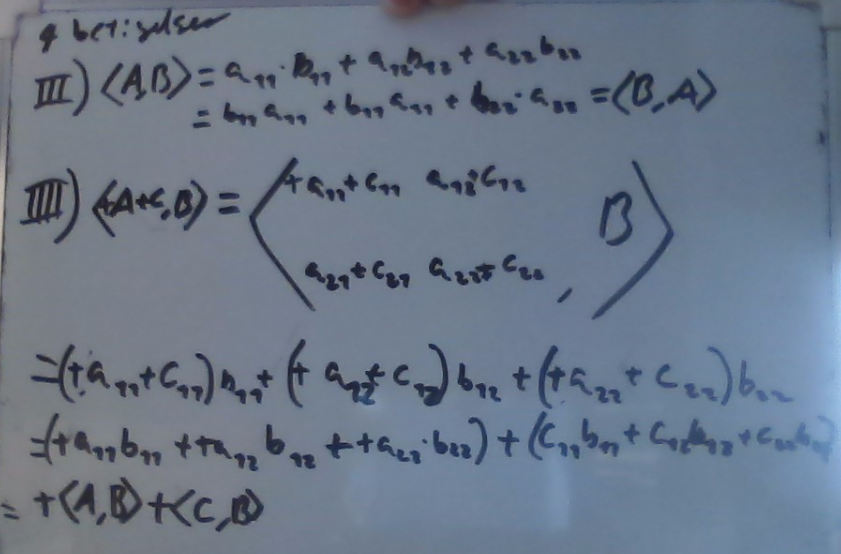 4 betingelser
III) ⟨A,B⟩ = a₁₁·b₁₁ + a₁₂b₁₂ + a₂₂b₂₂
= b₁₁a₁₁ + b₁₁a₁₁ + b₂₂·a₂₂ = ⟨B,A⟩
IIII) ⟨tA+C,B⟩ = ⟨ta₁₁+c₁₁ a₁₂+c₁₂
B⟩
a₂₁+c₂₁ a₂₂+c₂₂ ,
= (ta₁₁+c₁₁)b₁₁ + (t a₁₂+c₁₂)b₁₂ + (ta₂₂+c₂₂)b₂₂
= (ta₁₁b₁₁ + ta₁₂b₁₂ + ta₂₂·b₂₂) + (c₁₁b₁₁ + c₁₂b₁₂ + c₂₂b₂₂)
= t⟨A,B⟩ + ⟨C,B⟩